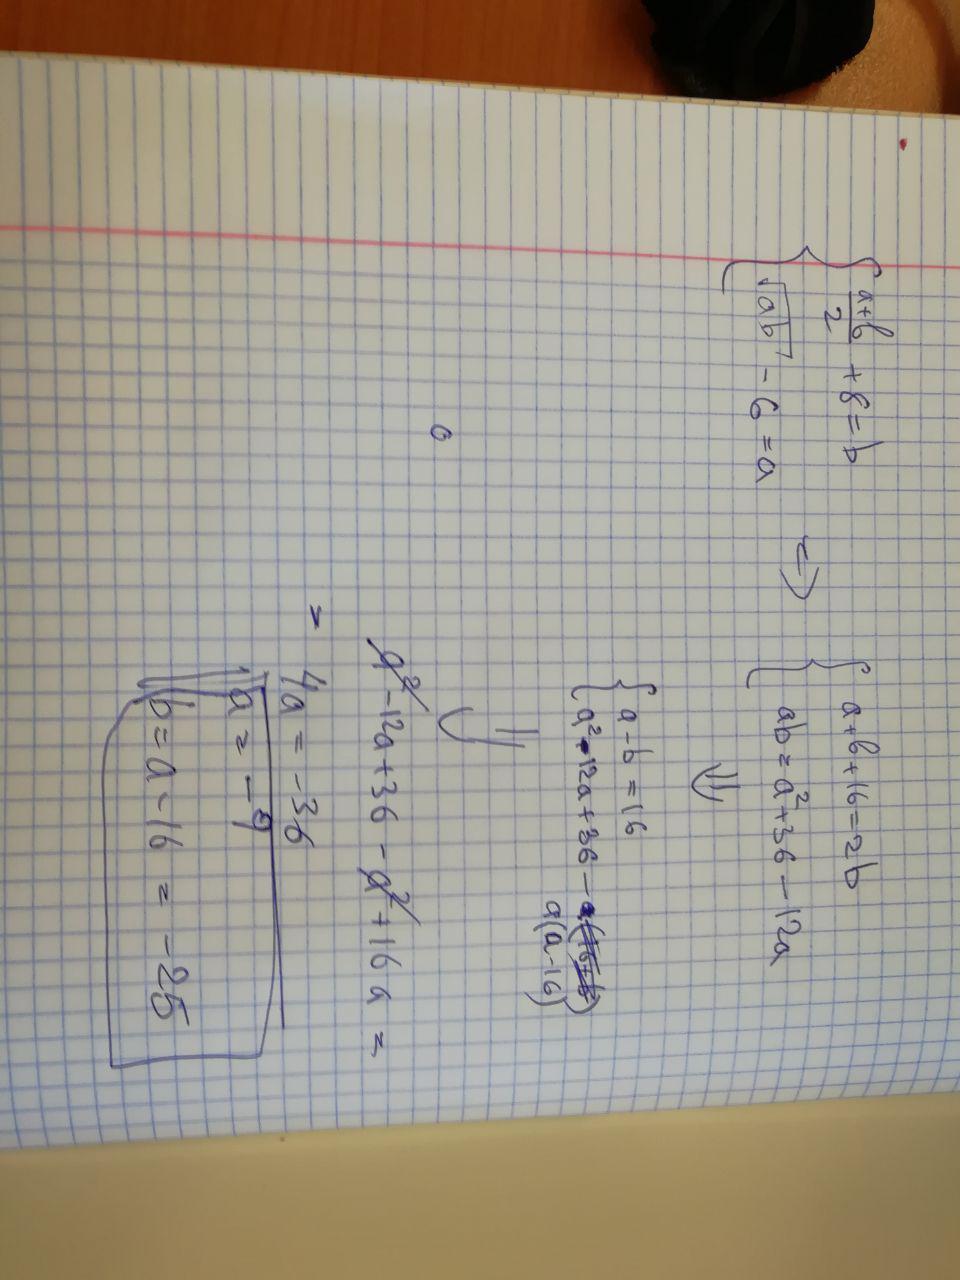 { (a+b)/2 + 8 = b
√ab - 6 = a
⇔
{ a+b+16=2b
ab = a²+36-12a
⇓
{ a-b=16
a²-12a+36-a(a-16)
⇓
a²-12a+36-a²+16a=
= 4a = -36
a = -9
b = a-16 = -25